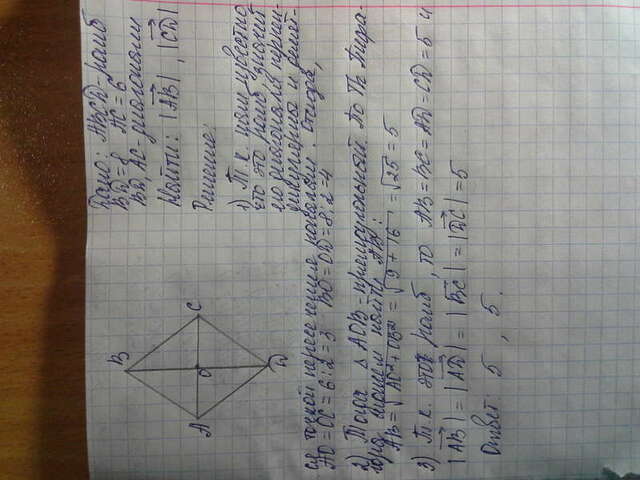 Дано: ABCD - ромб
BD = 8 AC = 6
BD, AC - диагонали
Найти: |AB|, |CD|
Решение:
1) Т.к. нам известно
что это ромб, значит
его диагонали перпен-
дикулярны и делят-
ся точкой пересечения пополам. Отсюда,
AO = OC = 6:2 = 3 BO = OD = 8:2 = 4
2) Тогда △AOB - прямоугольный. По Th Пифа-
гора можем найти AB:
AB = √AO²+OB² = √9+16 = √25 = 5
3) Т.к. это ромб, то AB = BC = AD = CD = 5 и
|AB| = |AD| = |BC| = |DC| = 5
Ответ: 5, 5.
B
A
O
C
D